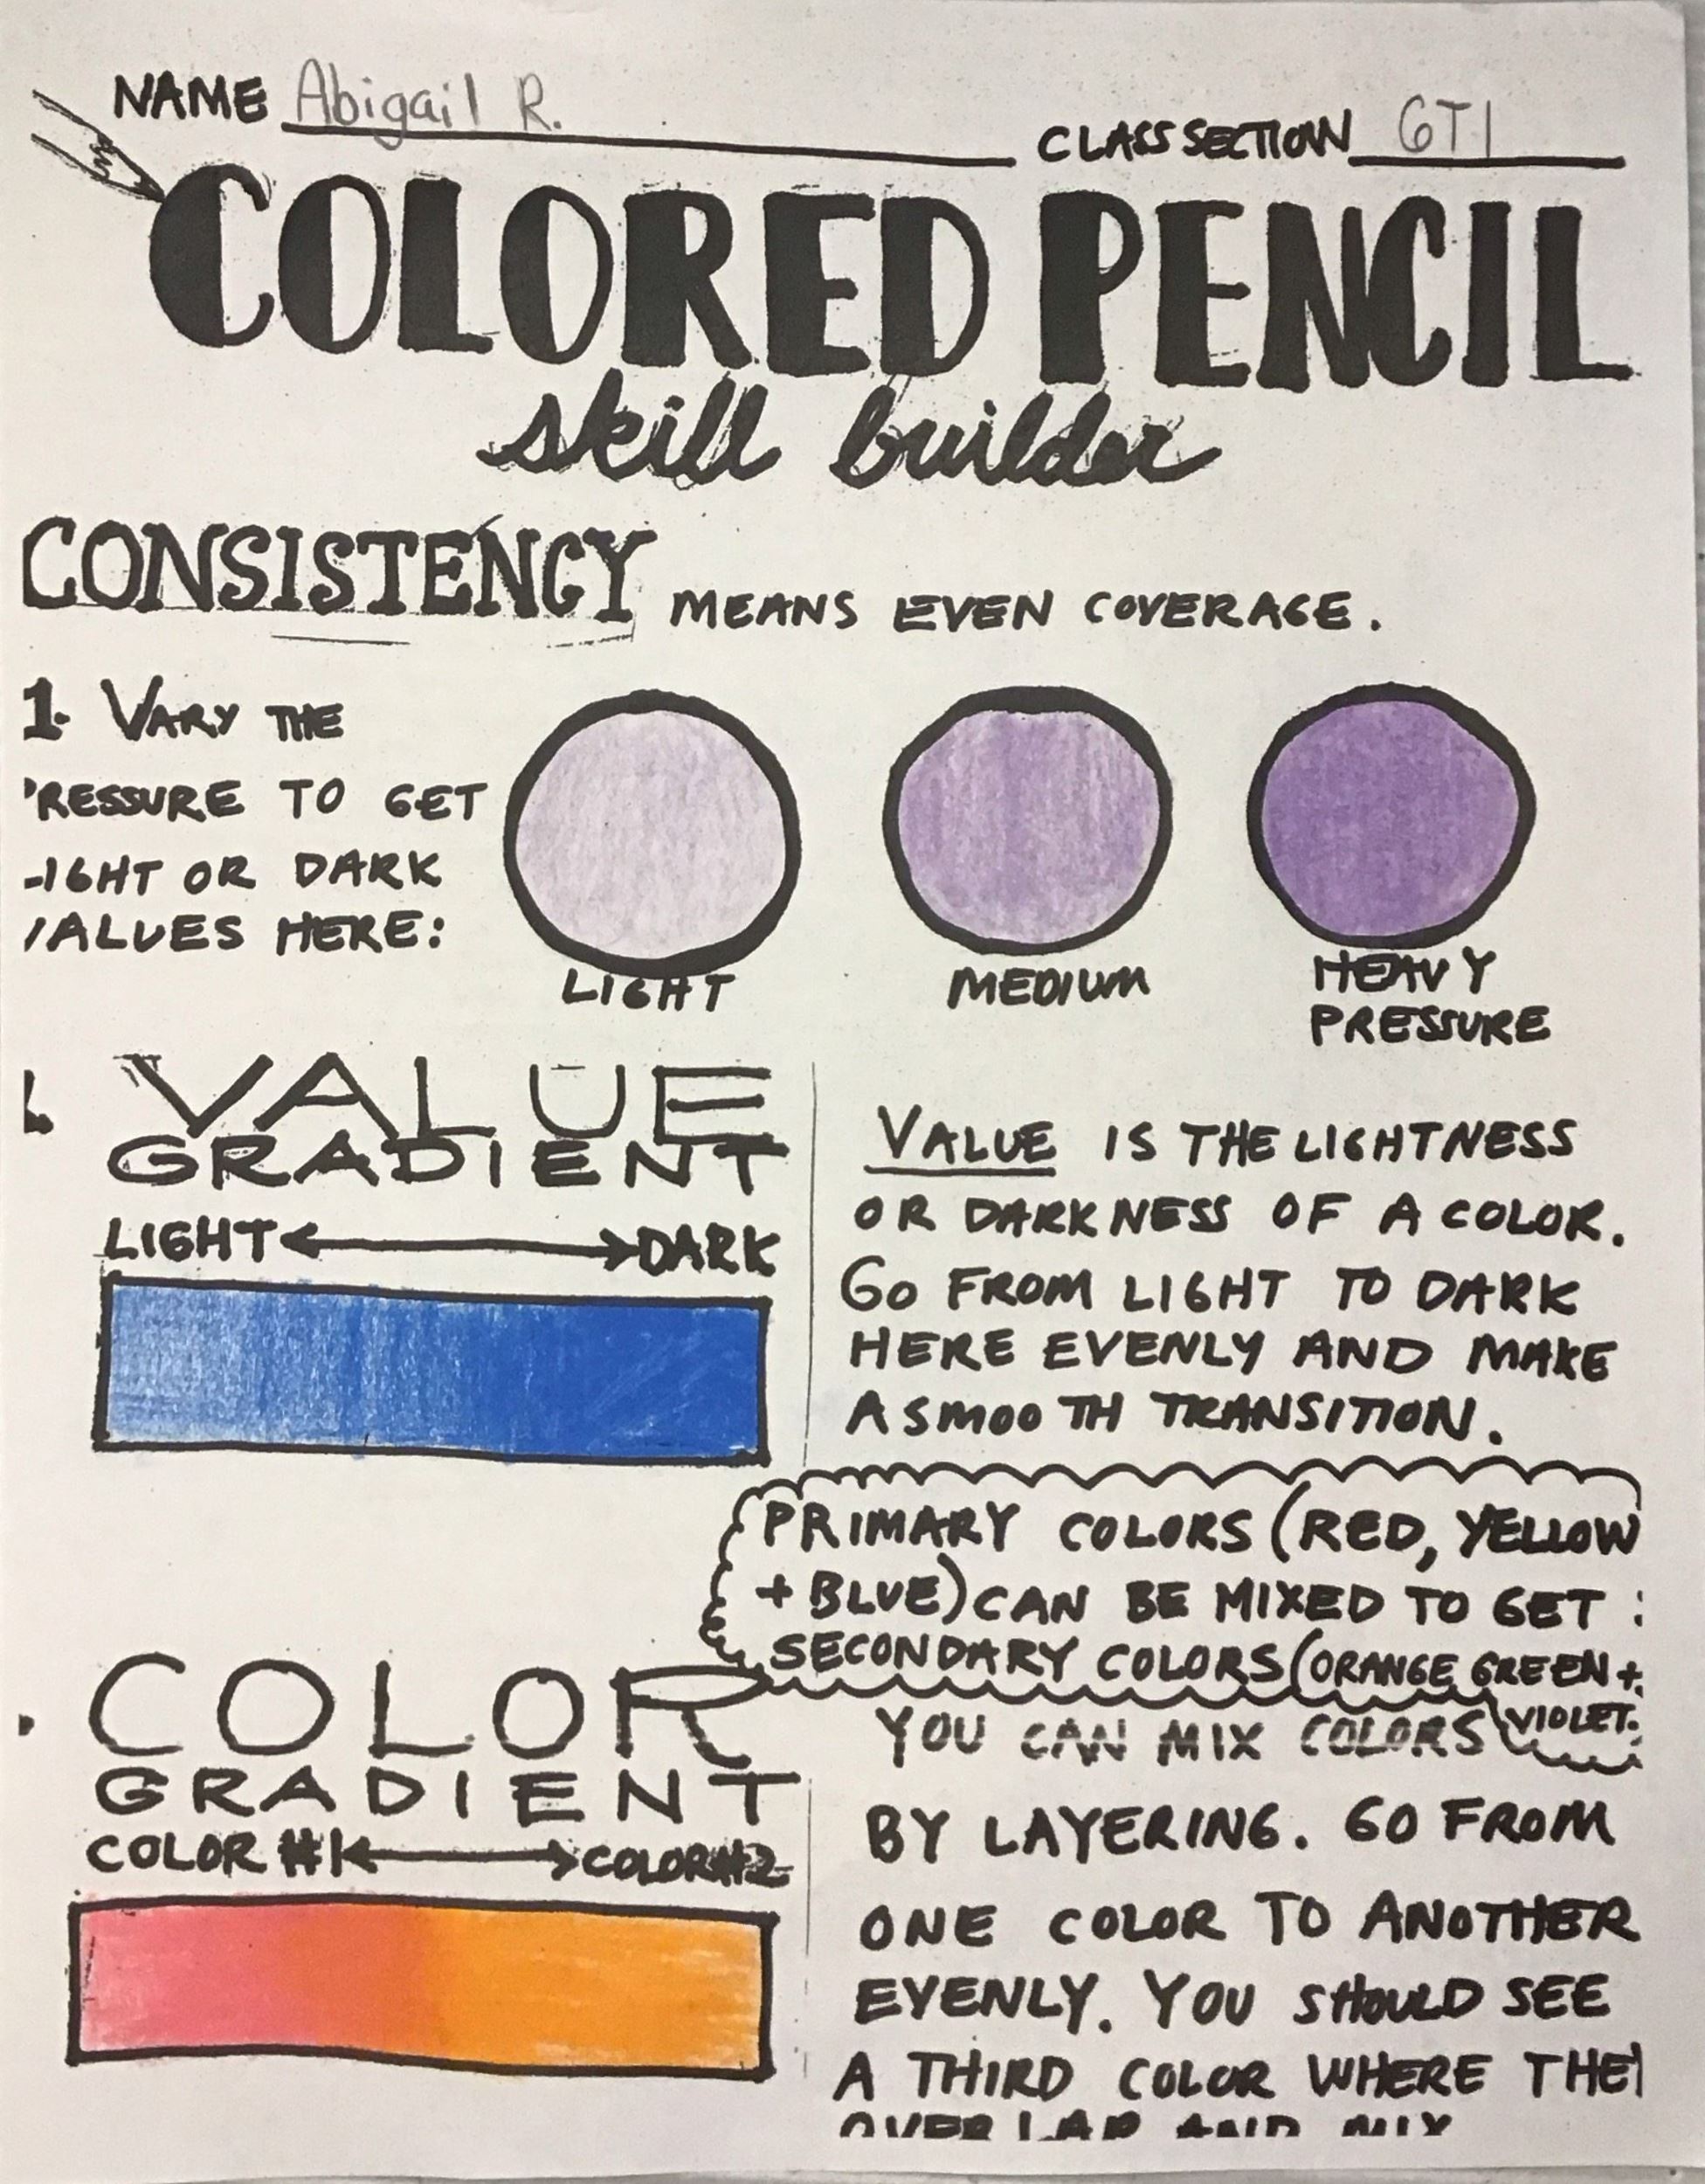 NAME Abigail R.
CLASS SECTION 6T1
COLORED PENCIL
skill builder
CONSISTENCY MEANS EVEN COVERAGE.
1. VARY THE
'RESSURE TO GET
-IGHT OR DARK
/ALUES HERE:
LIGHT
MEDIUM
HEAVY
PRESSURE
VALUE
GRADIENT
LIGHT DARK
VALUE IS THE LIGHTNESS
OR DARKNESS OF A COLOR.
GO FROM LIGHT TO DARK
HERE EVENLY AND MAKE
A SMOOTH TRANSITION.
PRIMARY COLORS (RED, YELLOW
+ BLUE) CAN BE MIXED TO GET :
SECONDARY COLORS (ORANGE GREEN +
VIOLET.
COLOR
GRADIENT
COLOR #1 COLOR #2
YOU CAN MIX COLORS
BY LAYERING. GO FROM
ONE COLOR TO ANOTHER
EVENLY. YOU SHOULD SEE
A THIRD COLOR WHERE THEY
OVERLAP AND MIX